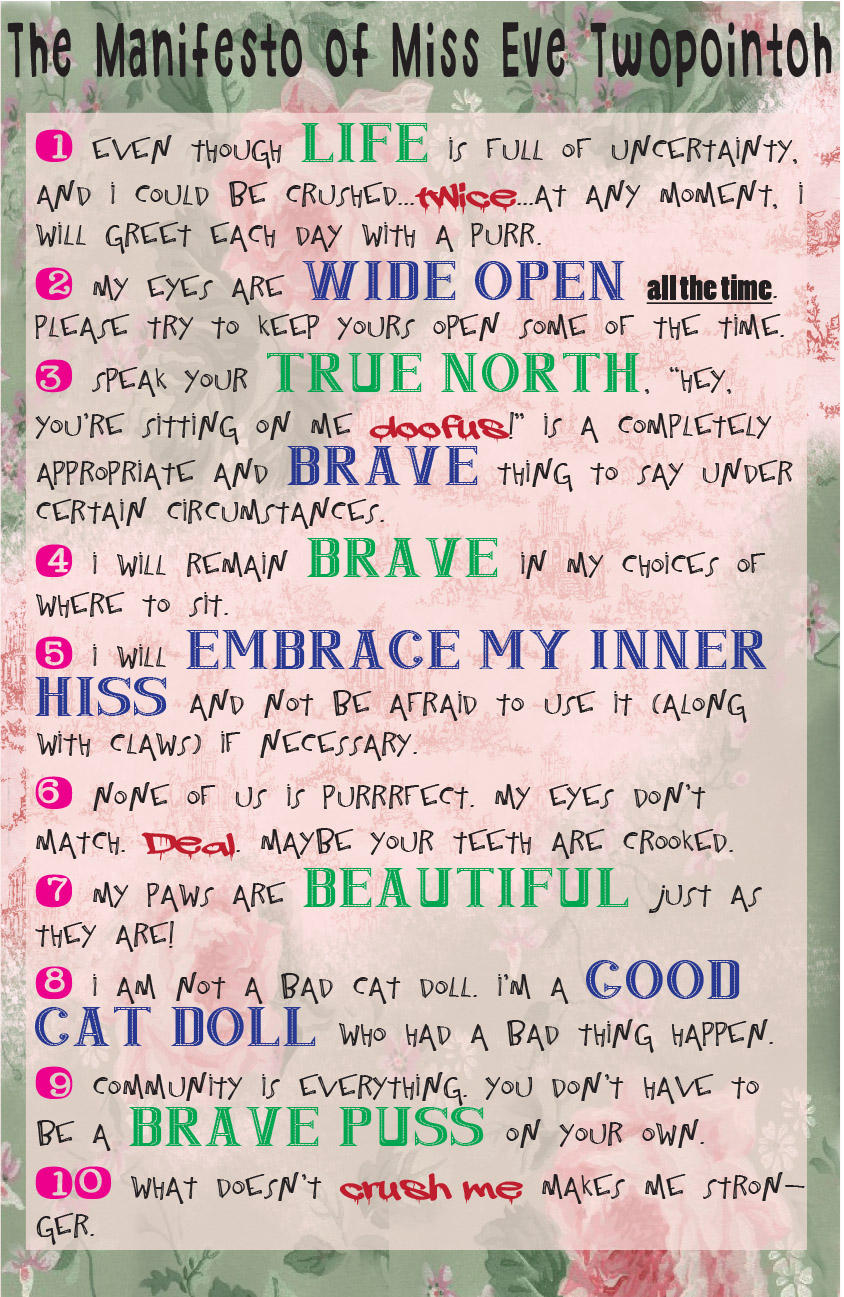 The Manifesto of Miss Eve Twopointoh
1 EVEN THOUGH LIFE IS FULL OF UNCERTAINTY,
AND I COULD BE CRUSHED...twice...AT ANY MOMENT, I
WILL GREET EACH DAY WITH A PURR.
2 MY EYES ARE WIDE OPEN all the time.
PLEASE TRY TO KEEP YOURS OPEN SOME OF THE TIME.
3 SPEAK YOUR TRUE NORTH, "HEY,
YOU'RE SITTING ON ME doofus!" IS A COMPLETELY
APPROPRIATE AND BRAVE THING TO SAY UNDER
CERTAIN CIRCUMSTANCES.
4 I WILL REMAIN BRAVE IN MY CHOICES OF
WHERE TO SIT.
5 I WILL EMBRACE MY INNER
HISS AND NOT BE AFRAID TO USE IT (ALONG
WITH CLAWS) IF NECESSARY.
6 NONE OF US IS PURRRFECT. MY EYES DON'T
MATCH. Deal. MAYBE YOUR TEETH ARE CROOKED.
7 MY PAWS ARE BEAUTIFUL JUST AS
THEY ARE!
8 I AM NOT A BAD CAT DOLL. I'M A GOOD
CAT DOLL WHO HAD A BAD THING HAPPEN.
9 COMMUNITY IS EVERYTHING. YOU DON'T HAVE TO
BE A BRAVE PUSS ON YOUR OWN.
10 WHAT DOESN'T crush me MAKES ME STRON-
GER.